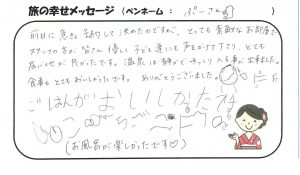 旅の幸せメッセージ (ペンネーム : ぷーさん)
前日に急きょ予約して決めたのですが、とっても素敵なお部屋で
スタッフの方が皆さん優しく子ども達にも声をかけて下さり、とても
居心地が良かったです。温泉は静かでゆっくり入る事が出来ました。
食事もとてもおいしかったです。ありがとうございました。
ごはんがおいしかったよ
(お風呂が楽しかったです♡)